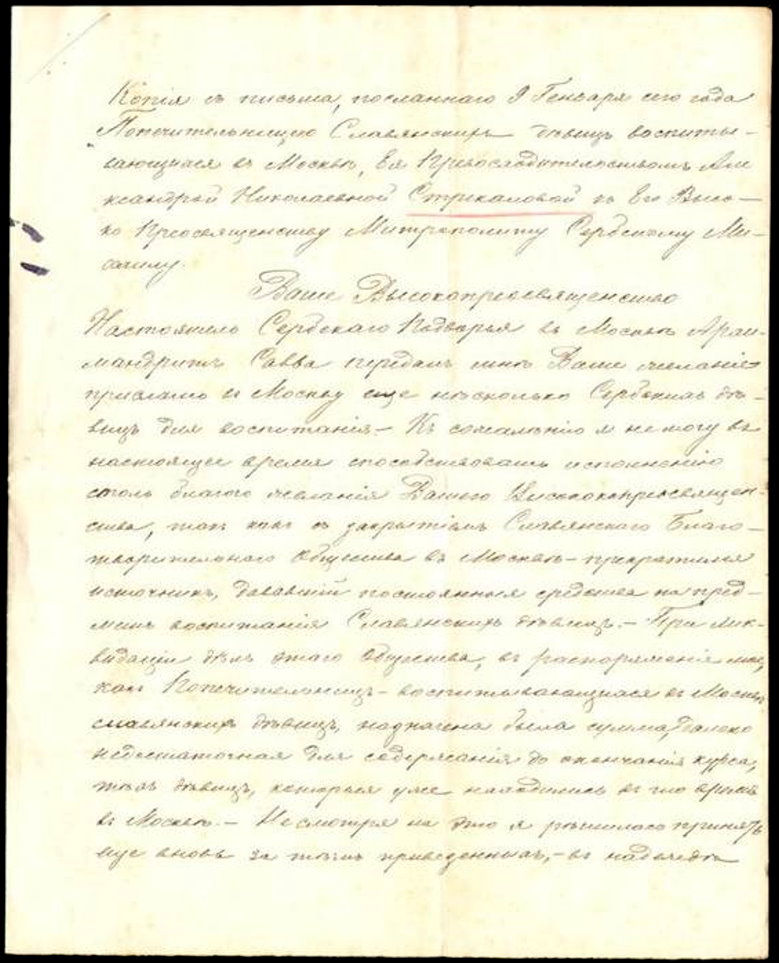 Копія съ письма, посланнаго 9 Генваря сего года
Попечительницею Славянскихъ дѣвицъ воспиты-
вающихся въ Москвѣ, Ея Превосходительствомъ Але
ксандрой Николаевной Стрекаловой къ Его Высо-
ко Преосвященству Митрополиту Сербскому Ми-
хаилу.
Ваше Высокопреосвященство
Настоятель Сербскаго Подворья въ Москвѣ Архи-
мандритъ Савва передалъ мнѣ Ваше желаніе
прислать въ Москву еще нѣсколько Сербскихъ дѣ-
вицъ для воспитанія.- Къ сожалѣнію я не могу въ
настоящее время способствовать исполненію
столь благого желанія Вашего Высокопреосвящен-
ства, такъ какъ съ закрытіемъ Славянскаго Благо-
творительнаго Общества въ Москвѣ - прекратился
источникъ, дававшій постоянныя средства на пред-
метъ воспитанія Славянскихъ дѣвицъ.- При лик-
видаціи дѣлъ этого Общества, въ распоряженіе мое,
какъ Попечительницы - воспитывающихся въ Москвѣ
славянскихъ дѣвицъ, назначена была сумма, далеко
недостаточная для содержанія до окончанія курса,
тѣхъ дѣвицъ, которыя уже находились въ то время
въ Москвѣ.- Не смотря на это я рѣшилась принять
еще вновь за тѣмъ приведенныхъ, - въ надеждѣ